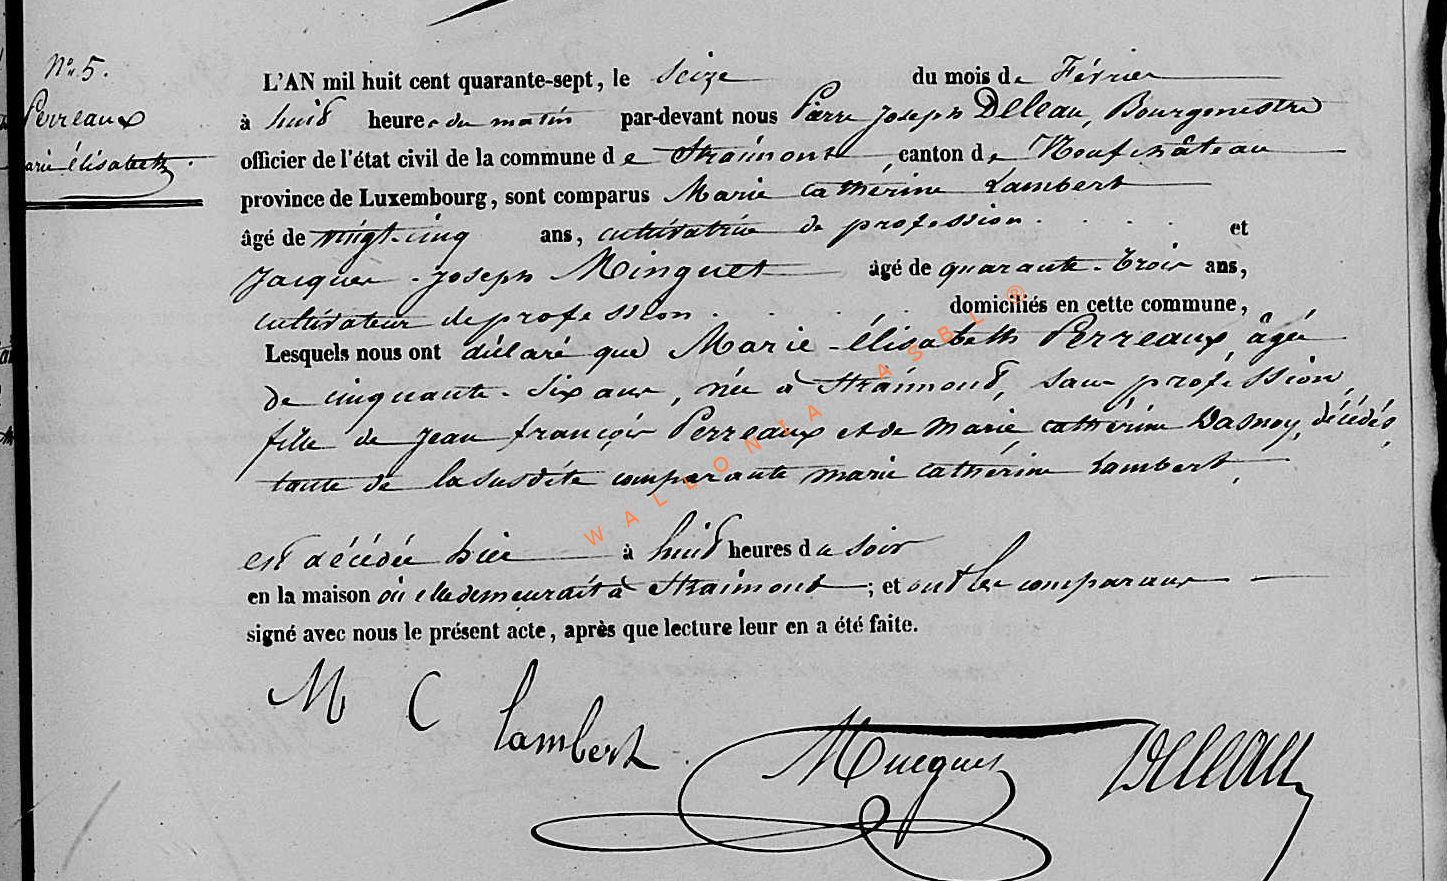 N° 5.
Perreaux
Marie élisabeth.
L'AN mil huit cent quarante-sept, le seize du mois de Février
à huit heures du matin par-devant nous Pierre Joseph Deleau, Bourgmestre
officier de l'état civil de la commune de Straimont canton de Neufchâteau
province de Luxembourg, sont comparus Marie Cathérine Lambert
âgé de vingt-cinq ans, cultivatrice de profession et
Jacques-Joseph Minguet âgé de quarante-trois ans,
cultivateur de profession. domiciliés en cette commune,
Lesquels nous ont déclaré que Marie-élisabeth Perreaux, âgée
de cinquante-six ans, née à Straimont, sans profession,
fille de Jean françois Perreaux et de marie cathérine Dasnoy, décédés,
tante de la susdite comparante marie cathérine Lambert,
est décédée hier à huit heures du soir
en la maison où elle demeurait à Straimont; et ont les comparans
signé avec nous le présent acte, après que lecture leur en a été faite.
M C Lambert. Deleau
WALLONIA ASBL ®